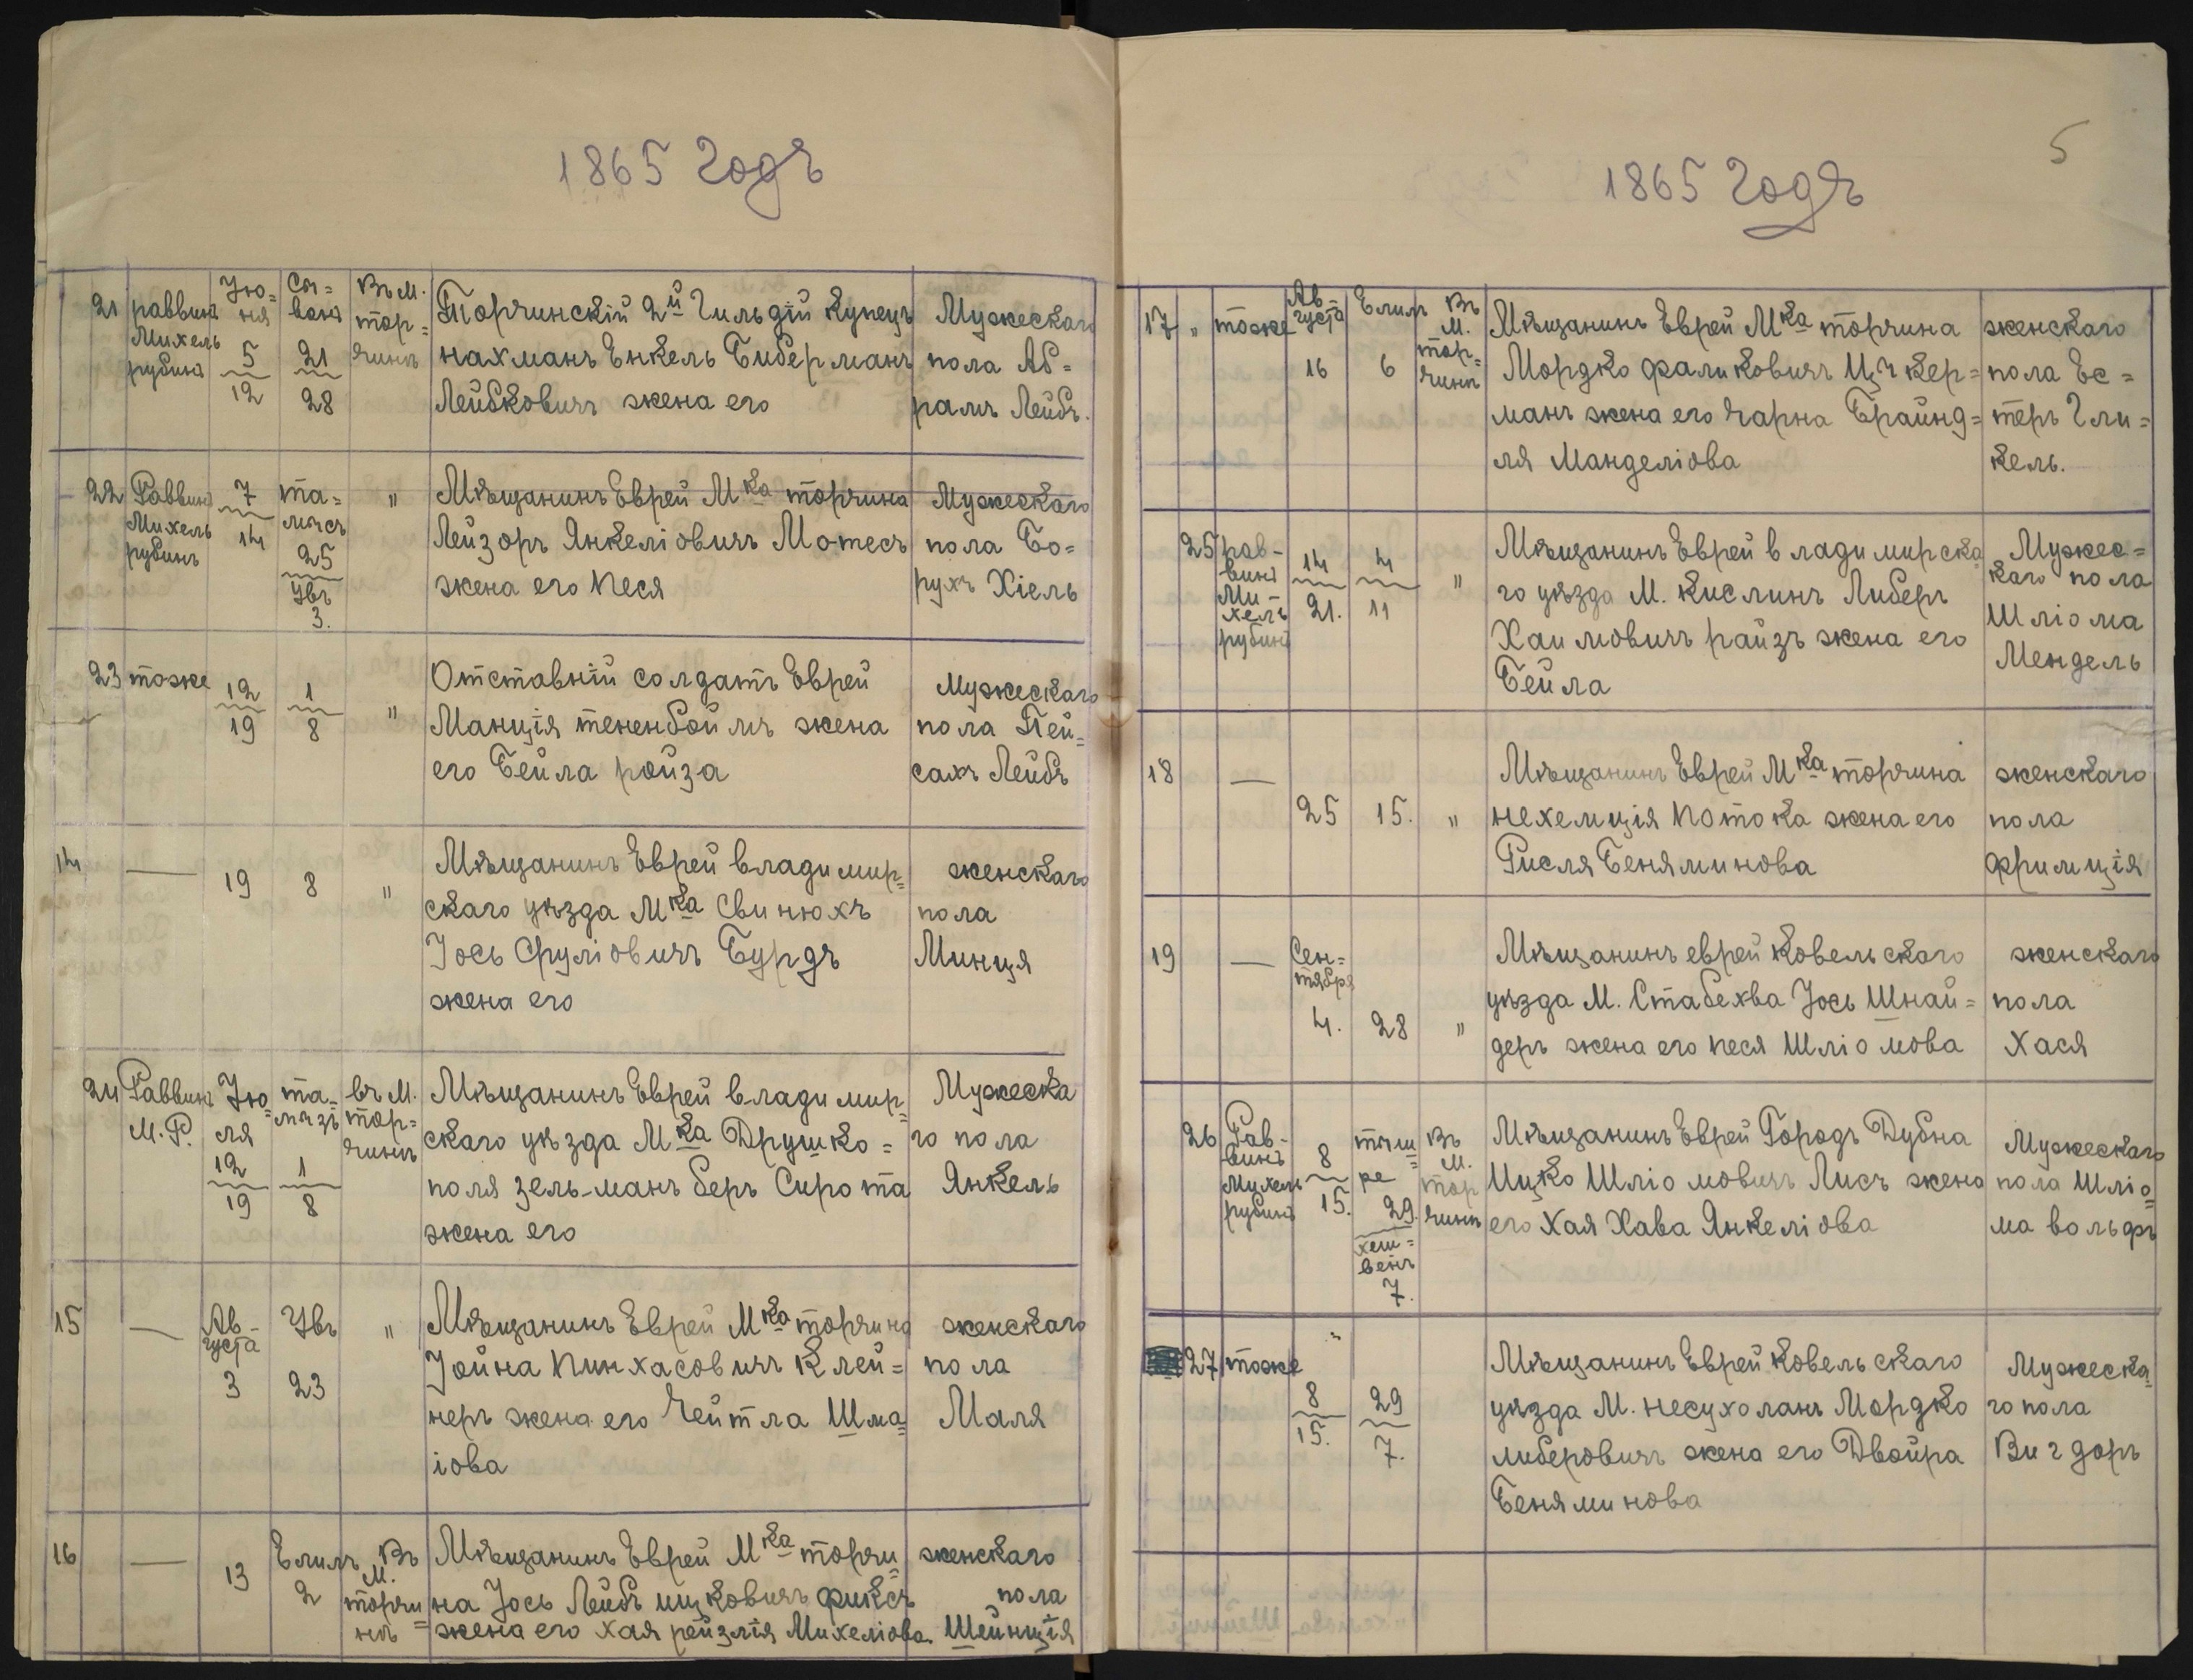 1865 Годъ
21 раввинъ Михель рубинъ Іюня 5 12 Сивана 21 28 Въ М. торчинѣ
Торчинскій 2й Гильдій Купецъ
нахманъ Енкель Биберманъ
Лейбковичъ жена его
Мужескаго
пола Аб=
рамъ Лейбъ.
22 Раввинъ Михель рубинъ 7 14 та=
мусъ
25
Увъ
3.
"
Мѣщанинъ Еврей Мка торчина
Лейзоръ Янкеліовичъ Мотесъ
жена его Песя
Мужескаго
пола Бо=
рухъ Хіель
23 тоже 12 19 1 8 "
Отставній солдатъ Еврей
Манція тененбоймъ жена
его Бейла ройза
Мужескаго
пола Пей=
сахъ Лейбъ
14 — 19 8 "
Мѣщанинъ Еврей владимир=
скаго уѣзда Мка Свинюхъ
Іось Сруліовичъ Бурдъ
жена его
женскаго
пола
Минця
24 Раввинъ М. Р. Іюля 12 19 1 8 въ М. торчинѣ
Мѣщанинъ Еврей владимир=
скаго уѣзда Мка Друшко=
поля зель-манъ беръ Сирота
жена его
Мужеска
го пола
Янкель
15 — Августа 3 Увъ 23 "
Мѣщанинъ Еврей Мка торчина
Іойна Пинхасовичъ Клей=
неръ жена его Чейтла Шма=
іова
женскаго
пола
Маля
16 — 13 Елилъ 2 Въ М. торчинѣ
Мѣщанинъ Еврей Мка торчи=
на Іось Лейбъ ицковичъ фиксъ
жена его хая рейзлія Михеліова
женскаго
пола
Шейнція
5
1865 Годъ
17 " тоже Августа 16 Елилъ 6 Въ М. торчинѣ
Мѣщанинъ Еврей Мка торчина
Мордко фаликовичъ Цукер=
манъ жена его Чарна Брайнд=
ля Манделіова
женскаго
пола Ес=
теръ Гли=
кель.
25 раввинъ Михель рубинъ 14 21. 4 11 "
Мѣщанинъ Еврей владимирска
го уѣзда М. Кислинъ Либеръ
Хаимовичъ райзъ жена его
Бейла
Мужес=
каго пола
Шліома
Мендель
18 — 25 15. "
Мѣщанинъ Еврей Мка торчина
нехемція Потока жена его
Рисля Беняминова
женскаго
пола
фримція
19 — Сентября 4. 28 "
Мѣщанинъ еврей Ковельскаго
уѣзда М. Стабехва Іось Шнай=
деръ жена его песя Шліомова
женскаго
пола
Хася
26 Раввинъ Михель рубинъ 8 15. тыш=
ре
29.
хеш=
венъ
7.
Въ М. торчинѣ
Мѣщанинъ Еврей Городъ Дубна
Ицко Шліомовичъ Лисъ жена
его Хая Хава Янкеліова
Мужескаго
пола Шліо=
ма вольфъ
27 тоже " 8 15. 29 7.
Мѣщанинъ Еврей Ковельскаго
уѣзда М. несухоланъ Мордко
либеровичъ жена его Двойра
Беняминова
Мужеска=
го пола
Вигдоръ